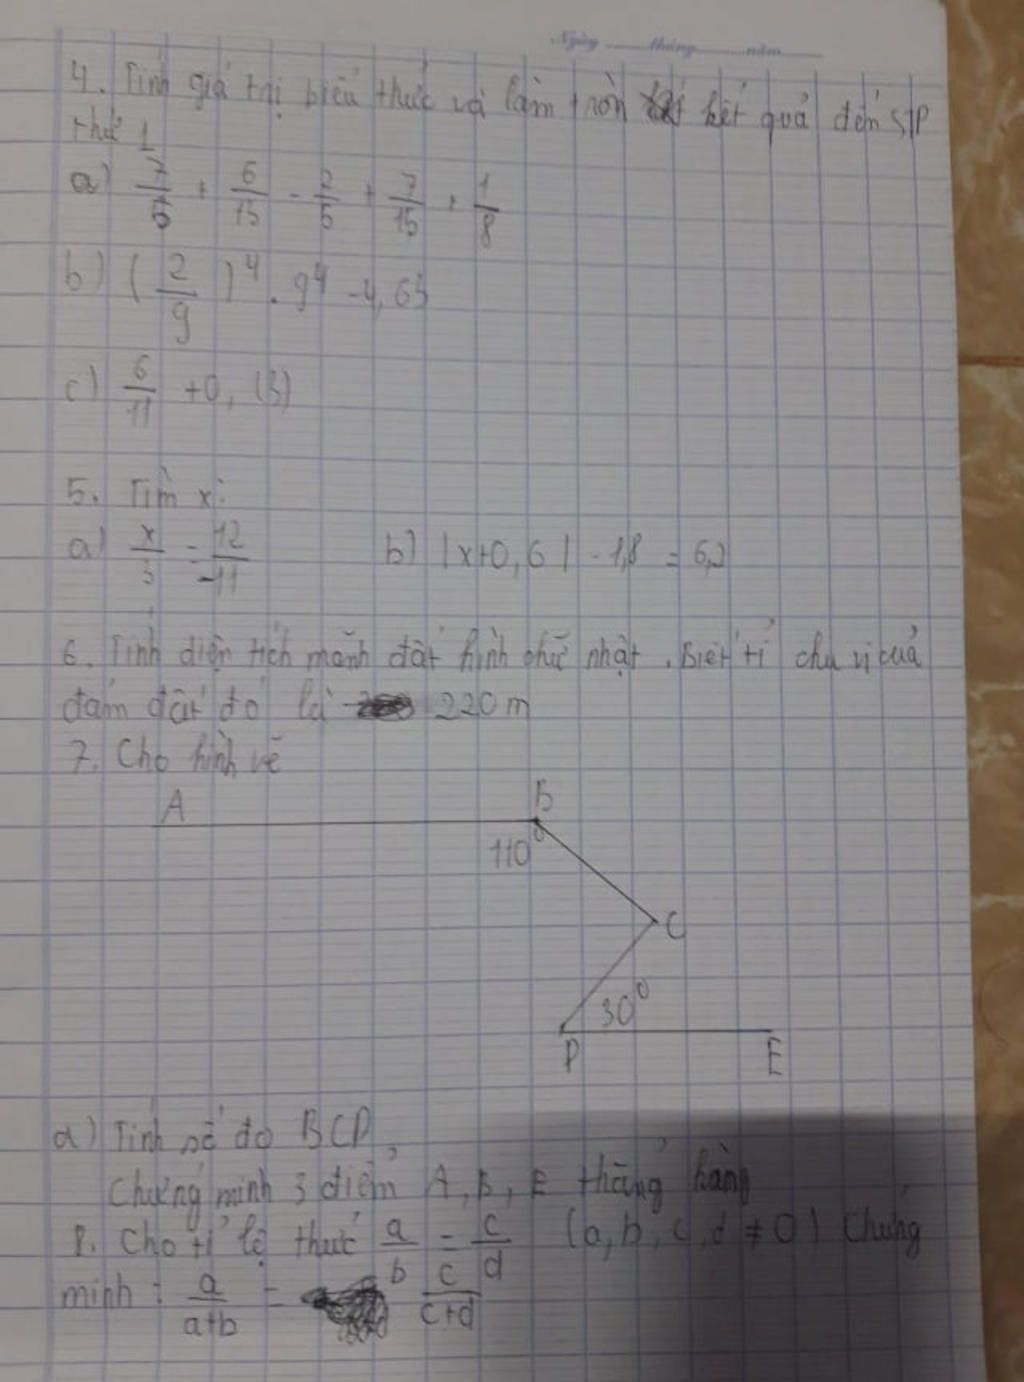 Ngày tháng năm
4. Tính giá trị biểu thức và làm tròn kết quả đến STP
thứ 1
a) 7/5 + 6/15 - 2/5 + 7/15 + 1/8
b) (2/9)^4 . 9^4 - 4,65
c) 6/11 + 0,(3)
5. Tìm x:
a) x/3 = 12/-11 b) |x+0,6| - 1,8 = 6,2
6. Tính diện tích mảnh đất hình chữ nhật. Biết tỉ chu vi của
đám đất đó là 220m
7. Cho hình vẽ
A B
110°
C
30°
P E
a) Tính số đo BCP.
Chứng minh 3 điểm A, B, E thẳng hàng
8. Cho tỉ lệ thức a/b = c/d (a, b, c, d ≠ 0) Chứng
minh: a/a+b = c/c+d